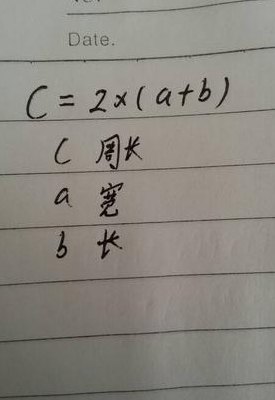 Date.
C=2×(a+b)
C 周长
a 宽
b 长